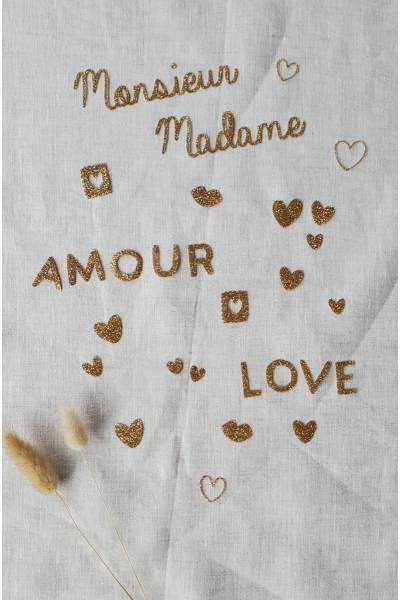 Monsieur
Madame
AMOUR
LOVE